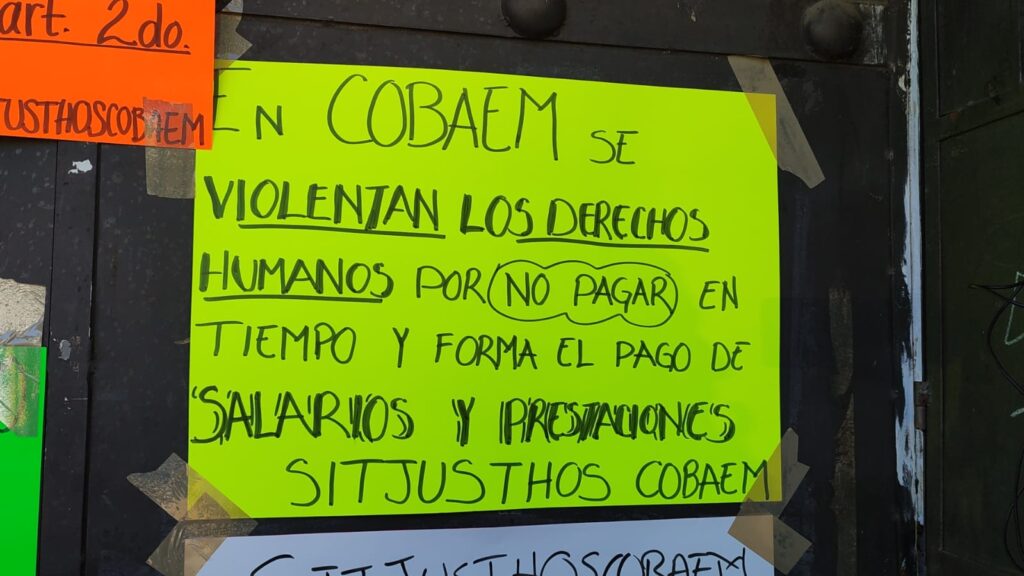 art. 2do.
JUSTHOSCOBAEM
EN COBAEM SE
VIOLENTAN LOS DERECHOS
HUMANOS POR NO PAGAR EN
TIEMPO Y FORMA EL PAGO DE
SALARIOS Y PRESTACIONES
SITJUSTHOS COBAEM
SITJUSTHOSCOBAEM